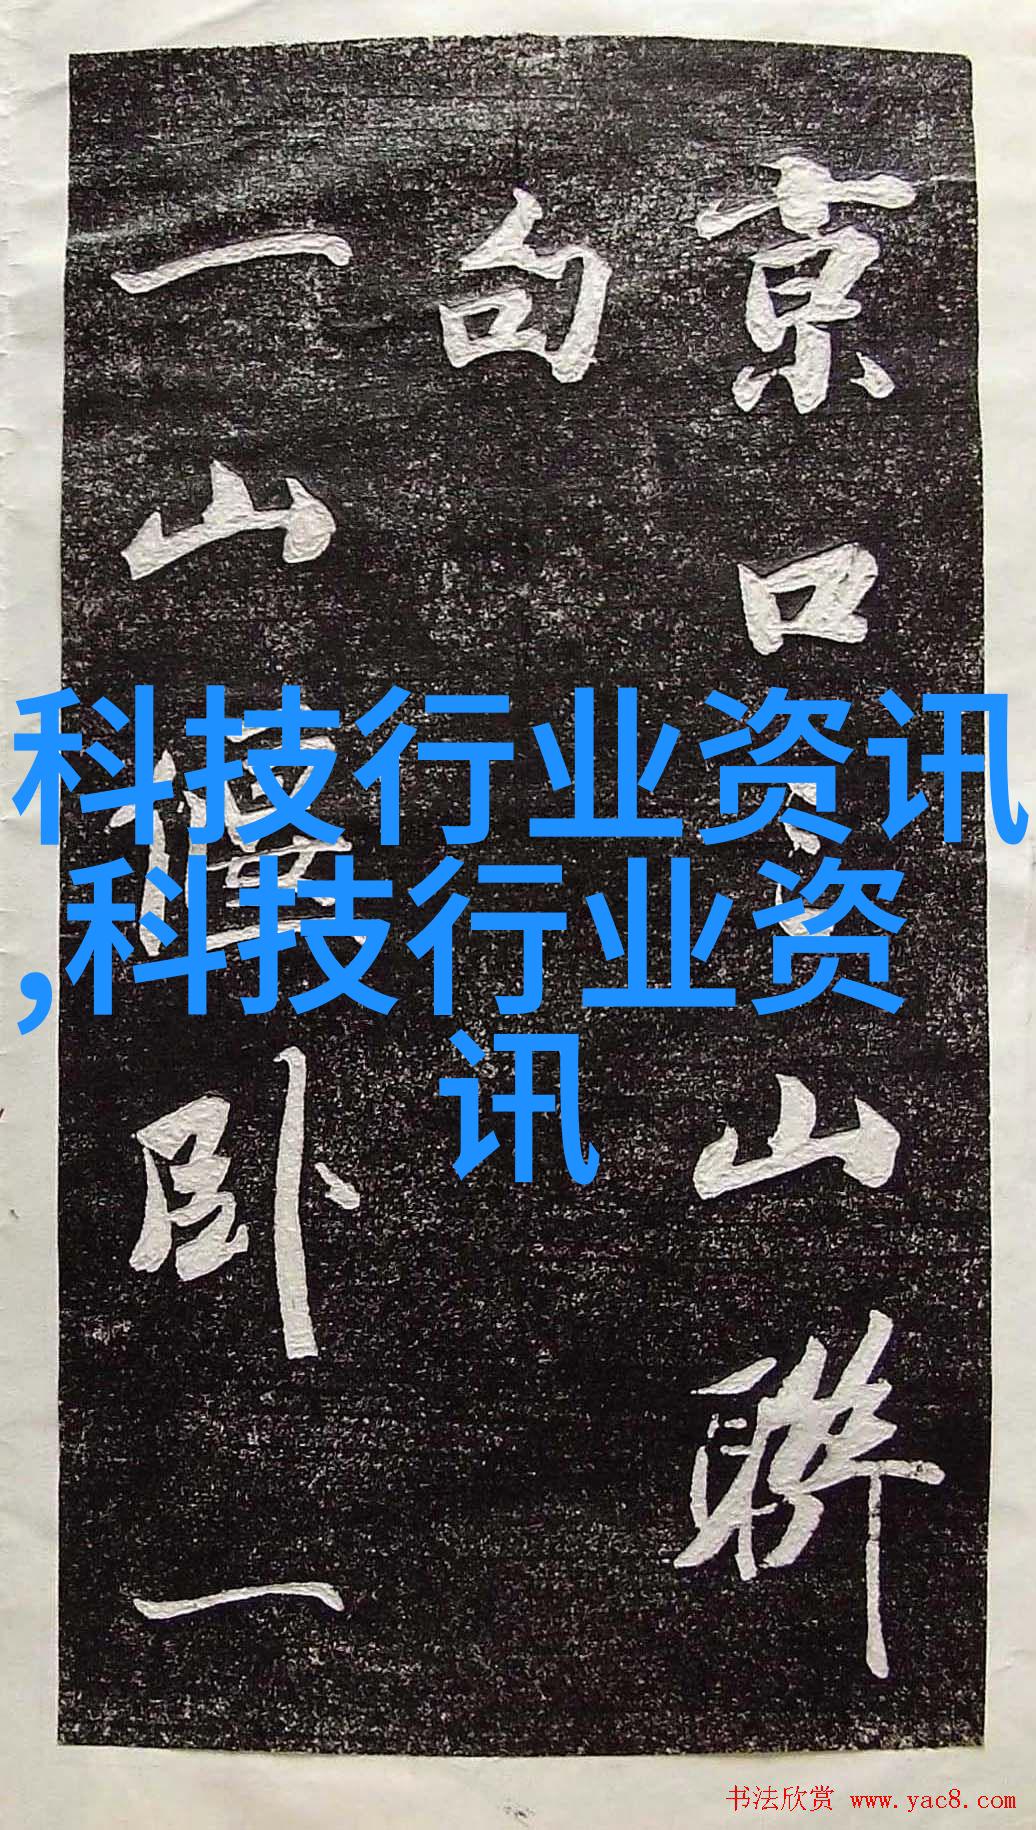 京口山聯
句
一山臥一
科技行业资讯
,科技行业资
讯
书法欣赏 www.yac8.com